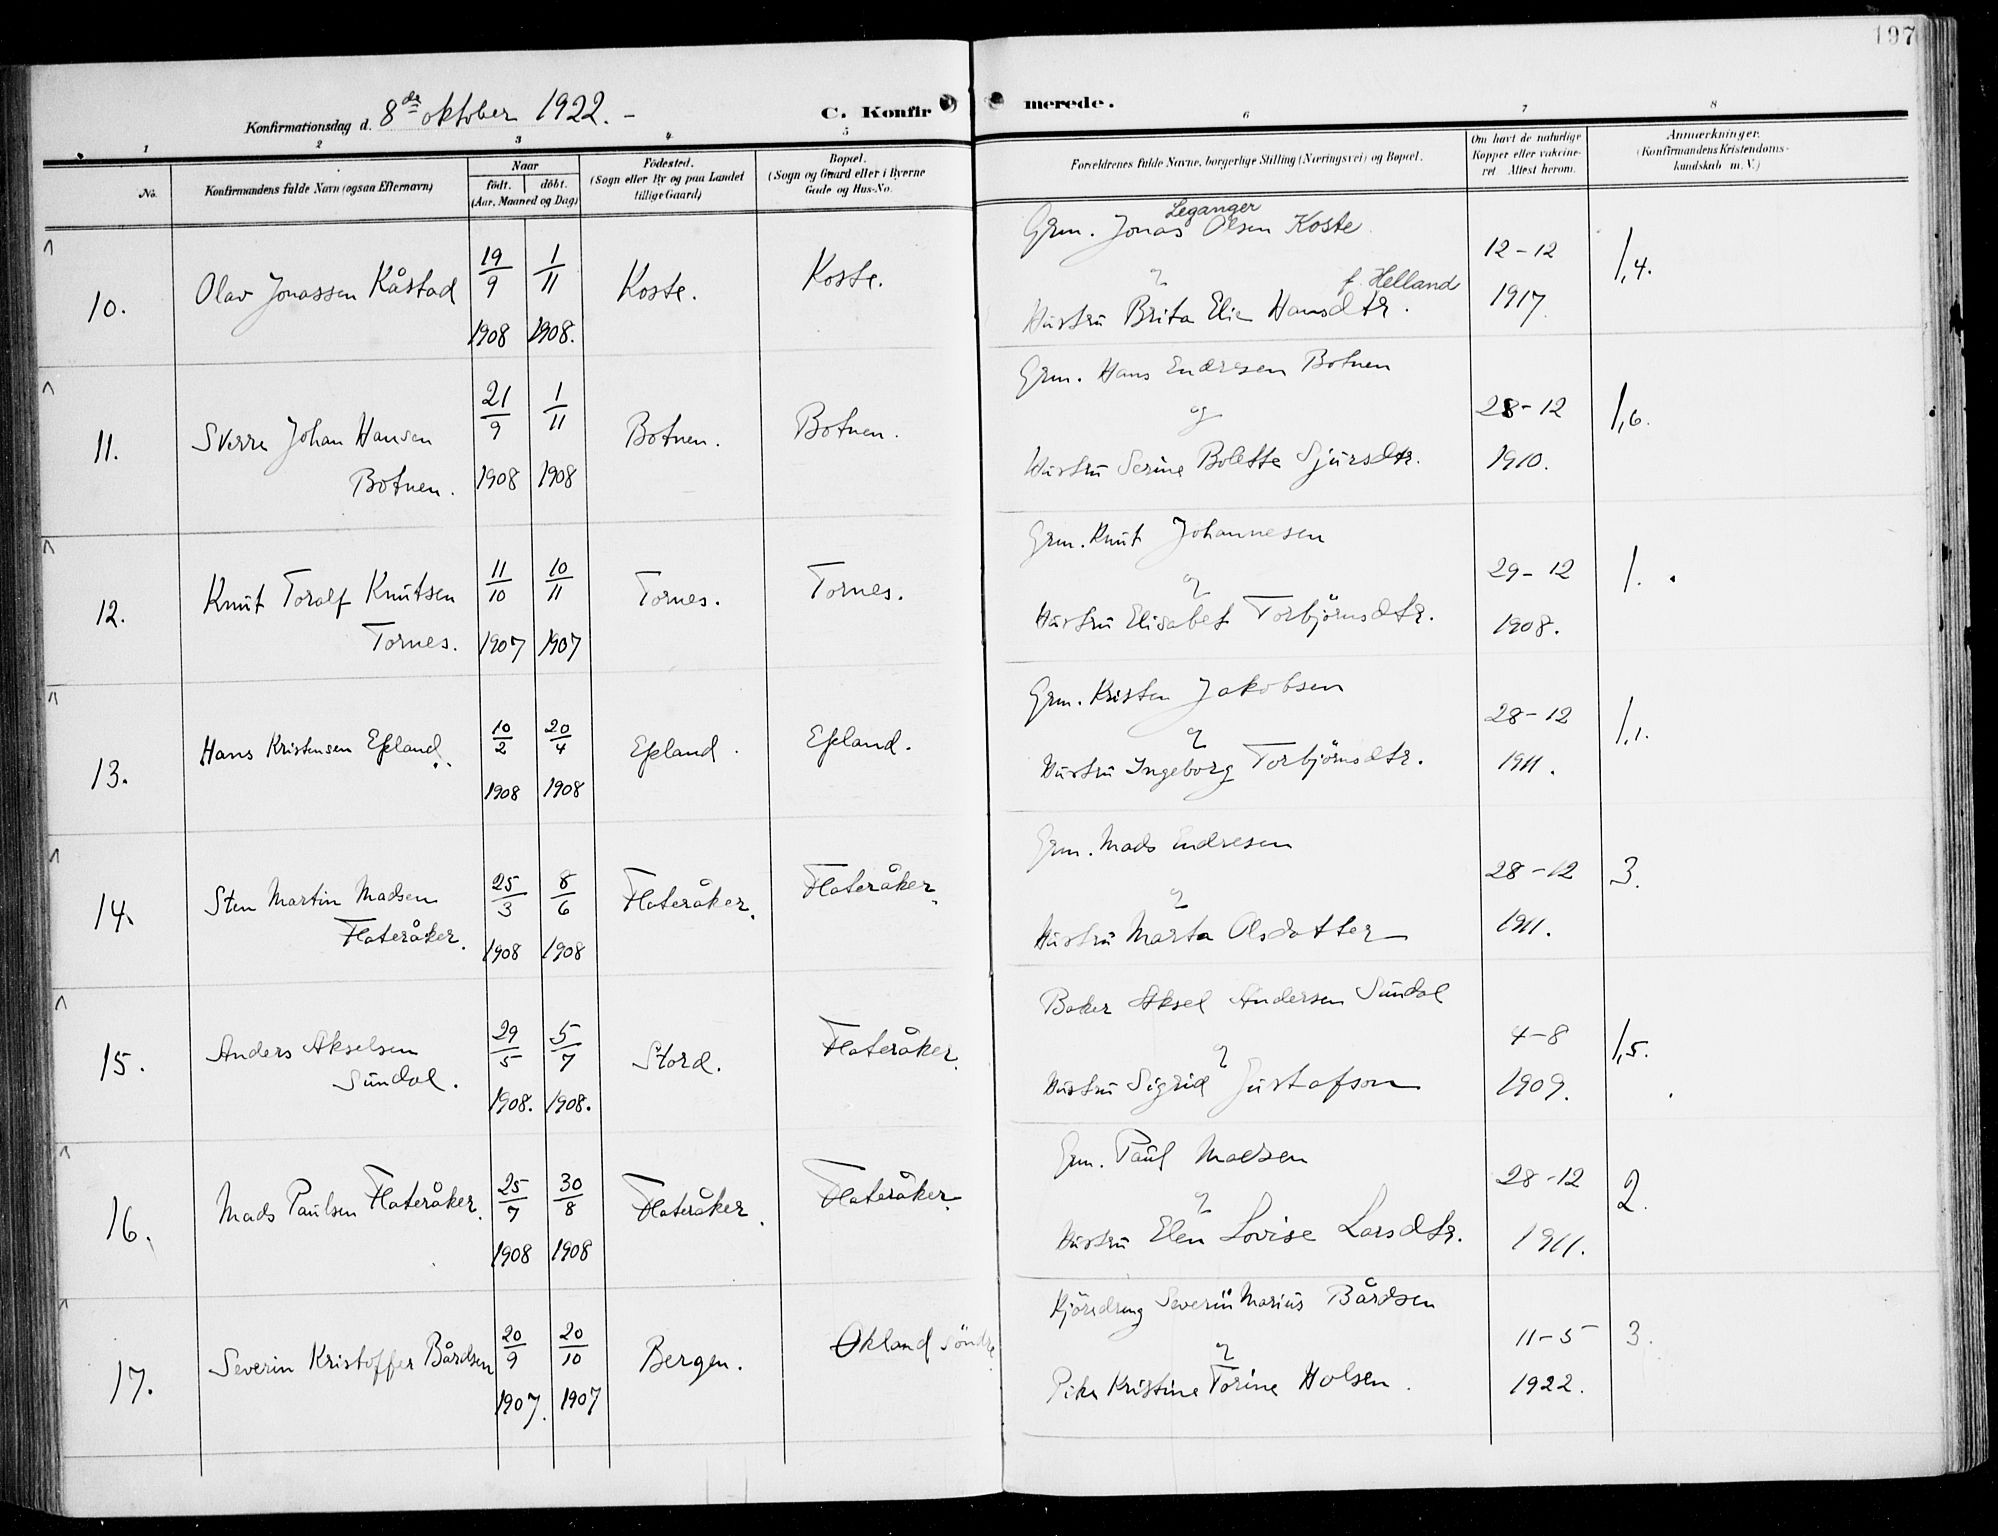 197
Konfirmationsdag d. 8de oktober 1922. -
C. Konfirmerede.
1 2 3 4 5 6 7 8
No.
Konfirmandens fulde Navn (ogsaa Efternavn)
Naar
födt. döbt.
(Aar, Maaned og Dag)
Födested.
(Sogn eller By og paa Landet
tillige Gaard)
Bopæl.
(Sogn og Gaard eller i Byerne
Gade og Hus-No.
Forældrenes fulde Navne, borgerlige Stilling (Næringsvei) og Bopæl.
Om havt de naturlige
Kopper eller vakcine-
ret Attest herom.
Anmærkninger.
(Konfirmandens Kristendoms-
kundskab m. V.)
10. Olav Jonassen Kåstad 19/9 1908 1/11 1908. Koste. Koste.
Grm. Jonas Leganger Olsen Koste
&
Hustru Brita Elie Hansdtr. f. Helland
12-12 1917. 1,4.
11. Sverre Johan Hansen
Botnen. 21/9 1908 1/11 1908 Botnen. Botnen.
Grm. Hans Endresen Botnen
og
Hustru Serine Bolette Sjursdtr.
28-12 1910. 1,6.
12. Knut Toralf Knutsen
Tornes. 11/10 1907 10/11 1907 Tornes. Tornes.
Grm. Knut Johannesen
&
Hustru Elisabet Torbjörnsdtr.
29-12 1908. 1.
13. Hans Kristensen Efteland. 10/2 1908 20/4 1908 Efteland. Efteland.
Grm. Kristen Jakobsen
&
Hustru Ingeborg Torbjörnsdtr.
28-12 1911. 1,1.
14. Sten Martin Madsen
Flateråker. 25/3 1908 8/6 1908 Flateråker. Flateråker.
Grm. Mads Endresen
&
Hustru Marta Olsdatter
28-12 1911. 3.
15. Anders Akselsen
Sundal. 29/5 1908. 5/7 1908. Stord. Flateråker.
Baker Aksel Andersen Sundal
&
Hustru Sigrid Gustafson
4-8 1909. 1,5.
16. Mads Paulsen Flateråker. 25/7 1908 30/8 1908 Flateråker. Flateråker.
Grm. Paul Madsen
&
Hustru Elen Lovise Larsdtr.
28-12 1911. 2.
17. Severin Kristoffer Bårdsen 20/9 1907. 20/10 1907 Bergen. Økland Söndre
Kjöredreng Severin Marius Bårdsen
&
Pike Kristine Torine Holsen.
11-5 1922. 3.